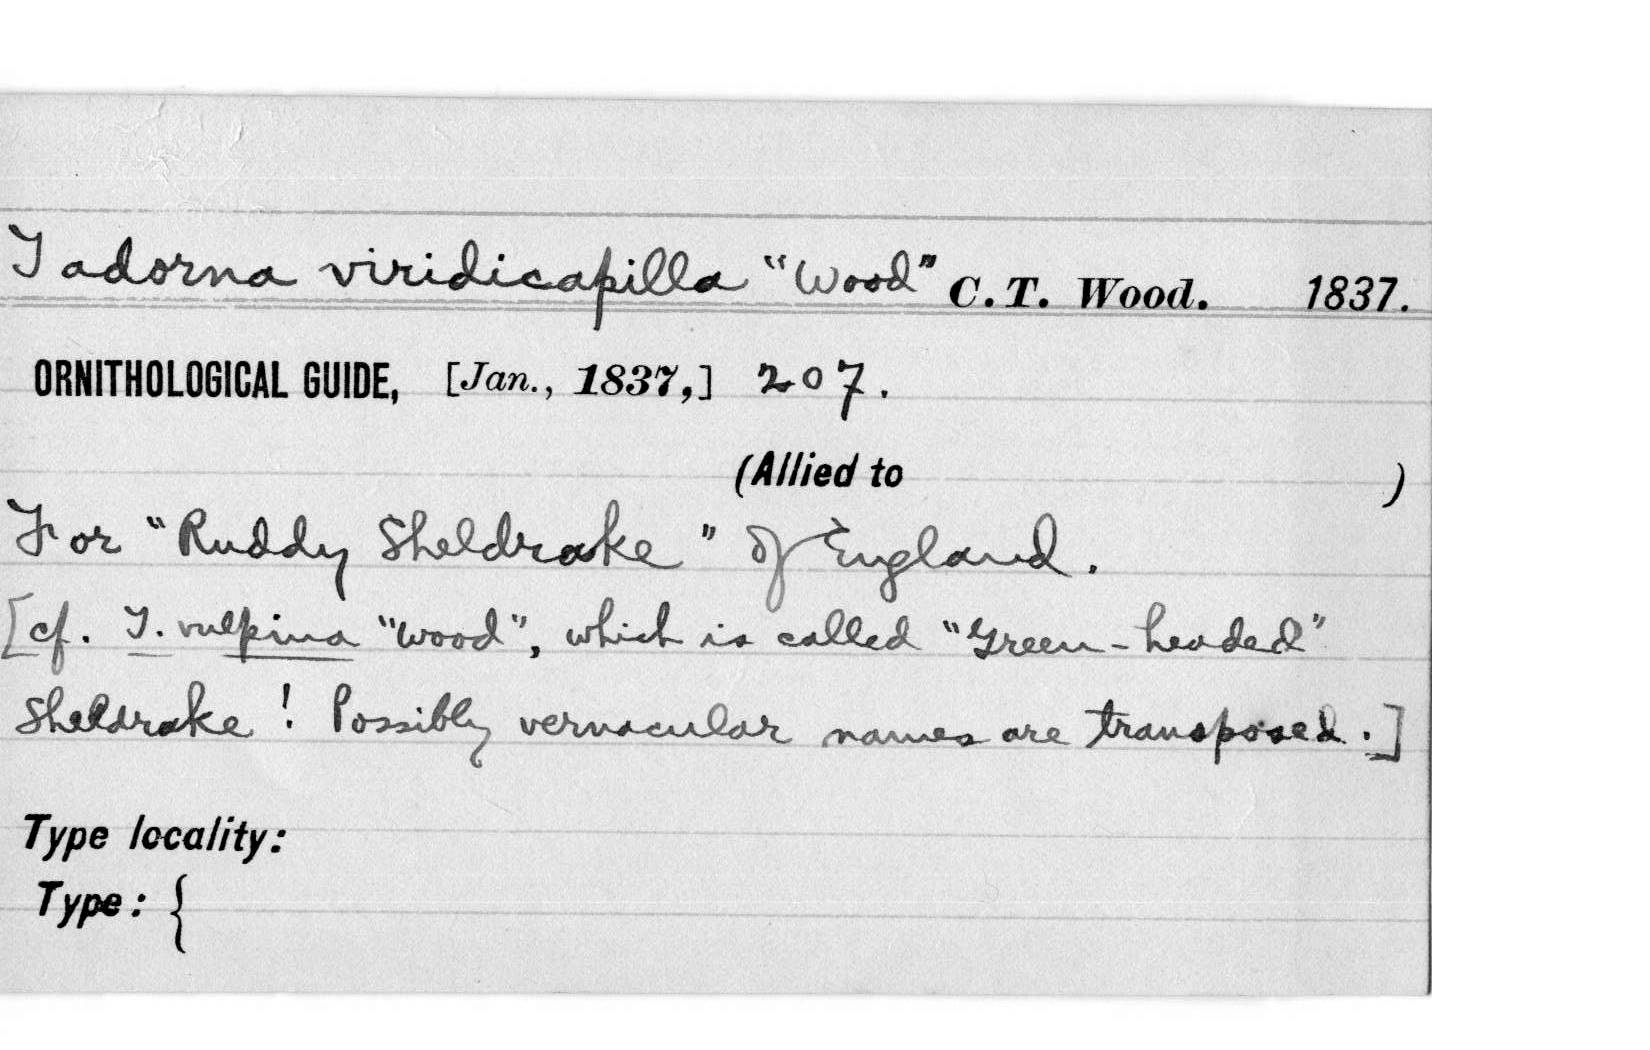 Tadorna viridicapilla "Wood" C. T. Wood. 1837.
ORNITHOLOGICAL GUIDE, [Jan., 1837,] 207.
(Allied to )
For "Ruddy Sheldrake" of England.
[cf. T. vulpina "Wood", which is called "Green-headed"
Sheldrake! Possibly vernacular names are transposed.]
Type locality:
Type: {